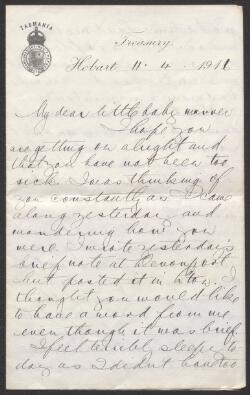 TASMANIA
Treasury,
Hobart 11. 4. 1911
My dear little baby
I hope you
are getting on alright and
that you have not been too
sick I was thinking of
you constantly as I came
along yesterday and
wondering how you
were I wrote yesterday's
brief note at Devonport
but posted it in L'ton. I
thought you would like
to have a word from me
even though it was brief
I feel terribly sleepy to
day as I didn't have too